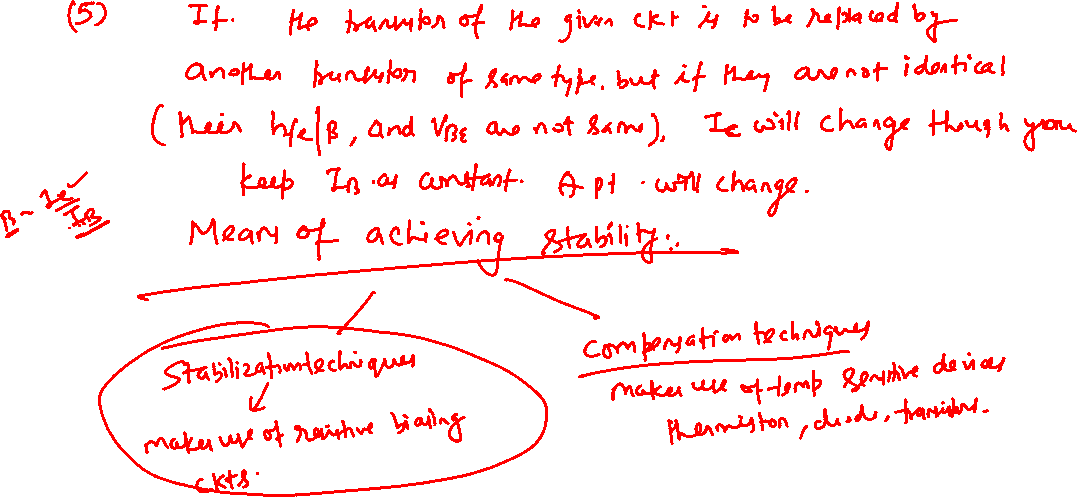 (5) If. the transistor of the given ckt is to be replaced by
another transistor of same type. but if they are not identical
(their hfe/β, and VBE are not same), Ic will change though you
keep IB as constant. Q pt will change.
β = Ic/IB
Means of achieving stability:.
Stabilization techniques
makes use of resistive biasing
ckts.
Compensation techniques
makes use of temp sensitive devices
thermistor, diode, transistors.